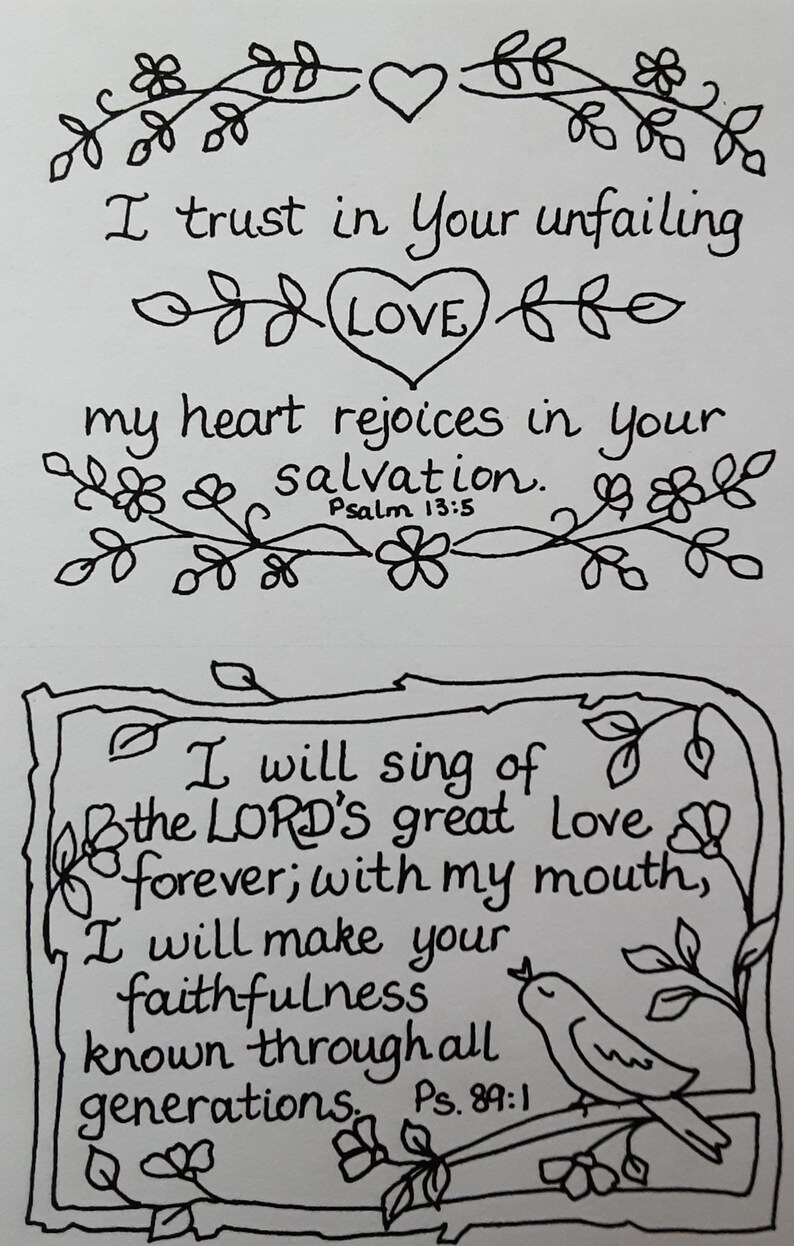 I trust in Your unfailing
LOVE
my heart rejoices in your
salvation.
Psalm 13:5
I will sing of
the LORD'S great love
forever; with my mouth,
I will make your
faithfulness
known through all
generations. Ps. 89:1